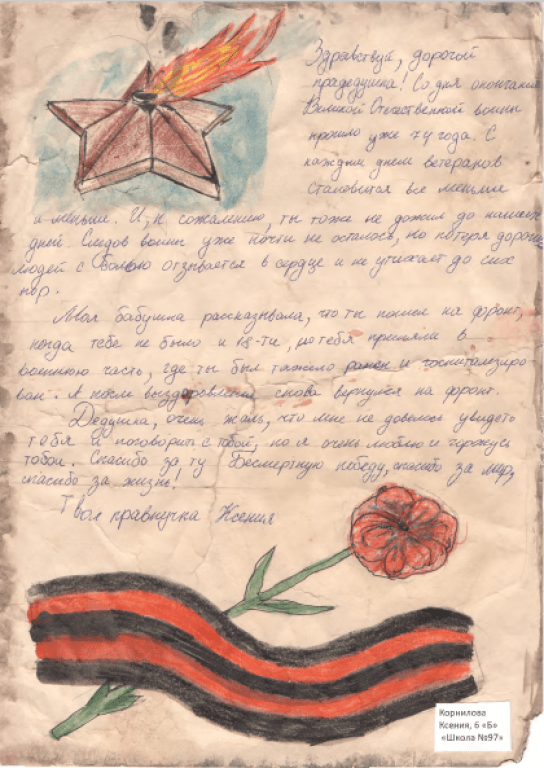 Здравствуй, дорогой
прадедушка! Со дня окончания
Великой Отечественной войны
прошло уже 74 года. С
каждым днем ветеранов
становится все меньше
и меньше. И, к сожалению, ты тоже не дожил до наших
дней. Следов войны уже почти не осталось, но потеря дорогих
людей с болью отзывается в сердце и не утихает до сих
пор.
Моя бабушка рассказывала, что ты пошел на фронт,
когда тебе не было и 18-ти, но тебя приняли в
воинскую часть, где ты был тяжело ранен и госпитализиро-
ван. А после выздоровления снова вернулся на фронт.
Дедушка, очень жаль, что мне не довелось увидеть
тебя и поговорить с тобой, но я очень люблю и горжусь
тобой. Спасибо за ту Бесмертную победу, спасибо за мир,
спасибо за жизнь!
Твоя правнучка Ксения
Корнилова
Ксения, 6 «Б»
«Школа №97»